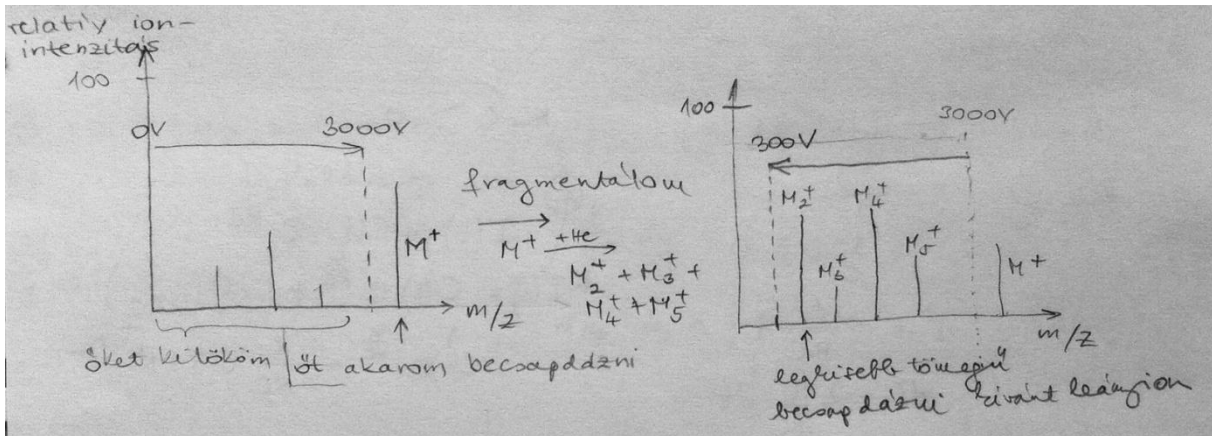 relatív ion-
intenzitás
100
0V
3000V
M⁺
m/z
őket kilököm
őt akarom becsapdázni
fragmentálom
M⁺ +He
M₂⁺ + M₃⁺ +
M₄⁺ + M₅⁺
100
3000V
300V
M₂⁺
M₃⁺
M₄⁺
M₅⁺
M⁺
m/z
legkisebb tömegű
becsapdázni kívánt leányion